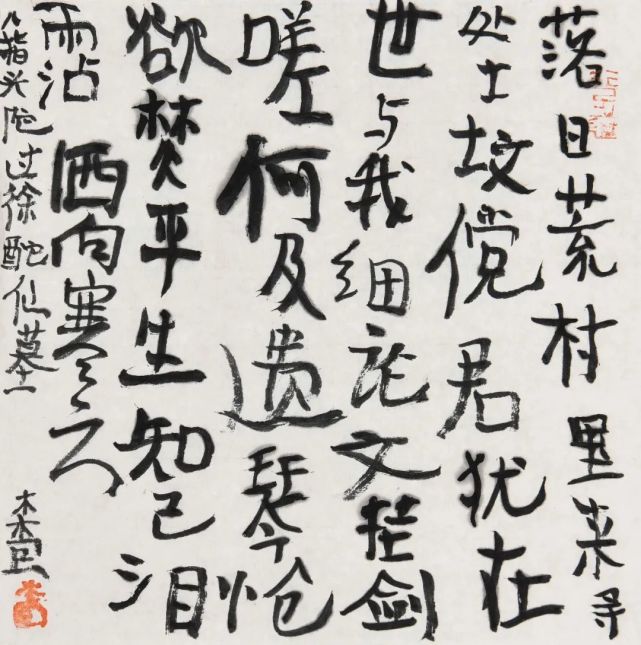 落日荒村里来寻
处士坟傥君犹在
世与我细论文挂剑
嗟何及遗琴怆
欲焚平生知己泪
雨沾洒向寒云
八指头陀过徐酡仙墓